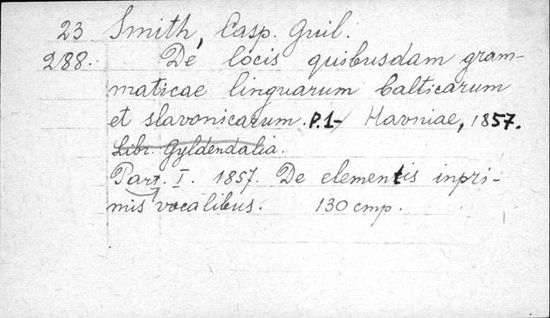 23 Smith, Casp. Guil.
288. De locis quibusdam gram-
maticae linguarum balticarum
et slavonicarum. P.1- Havniae, 1857.
Libr. Gyldendalia.
Part. I. 1857. De elementis inpri-
mis vocalibus. 130 cmp.